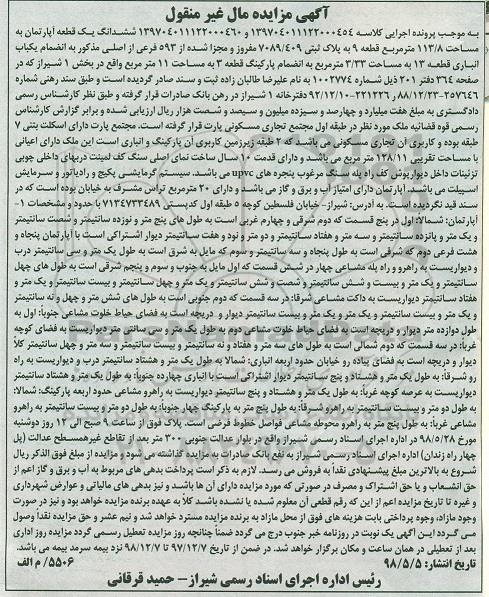 آگهی مزایده مال غیر منقول
به موجب پرونده اجرایی کلاسه ۱۳۹۷۰۴۰۱۱۱۲۲۰۰۰۴۵۴ و ۱۳۹۷۰۴۰۱۱۱۲۲۰۰۰۴۶۰ ششدانگ یک قطعه آپارتمان به
مساحت ۱۱۳/۸ مترمربع قطعه ۹ به پلاک ثبتی ۷۰۸۹/۴۰۹ مفروز و مجزا شده از ۵۹۳ فرعی از اصلی مذکور به انضمام یکباب
انباری قطعه ۱۳ به مساحت ۳/۳۳ مترمربع به انضمام پارکینگ قطعه ۳ به مساحت ۱۱ متر مربع واقع در بخش ۱ شیراز که در
صفحه ۳۶۴ دفتر ۲۰۱ ذیل شماره ۱۰۰۲۷۷۴ به نام علیرضا طالبان زاده ثبت و سند صادر گردیده است. و طبق سند رهنی شماره
۲۵۷۶۴۶-۸۸/۱۲/۲۳ و ۲۲۱۲۲۶-۹۲/۱۲/۱۰ دفترخانه ۱ شیراز در رهن بانک صادرات قرار گرفته و طبق نظر کارشناس رسمی
دادگستری به مبلغ هفت میلیارد و چهارصد و سیزده میلیون و سیصد و شصت هزار ریال ارزیابی شده و برابر گزارش کارشناس
رسمی قوه قضائیه ملک مورد نظر در طبقه اول مجتمع تجاری مسکونی پارت قرار گرفته است. مجتمع پارت دارای اسکلت بتنی ۷
طبقه بوده و کاربری آن تجاری مسکونی می باشد که ۲ طبقه زیرزمین کاربری آن پارکینگ و انباری است این ملک دارای اعیانی
با مساحت تقریبی ۱۲۸/۱۱ متر مربع می باشد و دارای قدمت ۱۰ سال ساخت نمای اصلی سنگ کف لمینت دربهای داخلی چوبی
تزئینات داخل دیوارپوش کف راه پله سنگ مرغوب پنجره های upvc می باشد. سیستم گرمایشی پکیج و رادیاتور و سرمایش
اسپیلت می باشد. آپارتمان دارای امتیاز آب و برق و گاز می باشد و دارای ۲۰ مترمربع تراس مشرف به خیابان بوده است که در
سند قید نگردیده است. به آدرس: شیراز- خیابان فلسطین کوچه ۵ طبقه اول کدپستی ۷۱۳۴۷۳۳۴۸۹ با حدود و مشخصات ۱-
آپارتمان: شمالا: اول در پنج قسمت که دوم شرقی و چهارم غربی است به طول های پنج متر و نوزده سانتیمتر و شصت سانتیمتر
و یک متر و پانزده سانتیمتر و سه متر و هفتاد سانتیمتر و دو متر و نود و هفت سانتیمتر دیوار اشتراکی است با آپارتمان پنجاه و
هشت فرعی دوم که شرقی است به طول پنجاه و سه سانتیمتر و سوم که مایل به شرق است به طول یک متر و سی سانتیمتر درب
و دیواریست به راهرو و راه پله مشاعی چهار در شش قسمت که اول مایل به جنوب و سوم و پنجم شرقی است به طول های چهل
سانتیمتر و یک متر و بیست و شش سانتیمتر و شصت و شش سانتیمتر و یک متر و چهل سانتیمتر و بیست سانتیمتر و یک متر و
هفتاد سانتیمتر دیواریست به داکت مشاعی شرقا: در سه قسمت که دوم جنوبی است به طول های شش متر و چهل و نه سانتیمتر
و یک متر و بیست سانتیمتر و یک متر و بیست سانتیمتر دیوار و دریچه است به فضای حیاط خلوت مشاعی جنوباً: اول به
طول دوازده متر دیوار و دریچه است به فضای حیاط خلوت مشاعی دوم به طول یک متر و سی سانتی متر دیواریست به فضای کوچه
غرباً: در سه قسمت که دوم شمالی است به طول های سه متر و هفتاد و نه سانتیمتر و بیست سانتیمتر و سه متر و چهل سانتیمتر کلاً
دیوار و دریچه است به فضای پیاده رو خیابان حدود اربعه انباری: شمالا به طول یک متر و هشتاد سانتیمتر درب و دیواریست به راه
رو شرقاً: به طول یک متر و هشتاد و پنج سانتیمتر دیوار اشتراکی است با انباری چهارده جنوباً: به طول یک متر و هشتاد سانتیمتر
دیواریست به عرصه کوچه غرباً: به طول یک متر و هشتاد و پنج سانتیمتر دیواریست به راهرو مشاعی حدود اربعه پارکینگ: شمالا:
به طول دو متر و بیست سانتیمتر به راهرو شرقاً: به طول پنج متر به پارکینگ چهار جنوباً: به طول دو متر و بیست سانتیمتر به راهرو
مشاعی غرباً: به طول پنج متر به راهرو محوطه مشاعی فواصل خطوط فرضی است. پلاک فوق از ساعت ۹ صبح الی ۱۲ روز دوشنبه
مورخ ۹۸/۵/۲۸ در اداره اجرای اسناد رسمی شیراز واقع در بلوار عدالت جنوبی ۳۰۰ متر بعد از تقاطع غیرهمسطح عدالت (پل
چهار راه زندان) اداره اجرای اسناد رسمی شیراز به نفع بانک صادرات به مزایده گذاشته می شود و مزایده از مبلغ فوق الذکر ریال
شروع به بالاترین مبلغ پیشنهادی نقداً به فروش می رسد. لازم به ذکر است پرداخت بدهی های مربوط به آب و برق و گاز اعم از
حق انشعاب و یا حق اشتراک و مصرف در صورتی که مورد مزایده دارای آن ها باشد و نیز بدهی های مالیاتی و عوارض شهرداری
و غیره تا تاریخ مزایده اعم از این که رقم قطعی آن معلوم شده یا نشده باشد کلاً به عهده برنده مزایده خواهد بود و نیز در صورت
وجود مازاد، وجوه پرداختی بابت هزینه های فوق از محل مازاد به برنده مزایده مسترد خواهد شد و نیم عشر و حق مزایده نقداً وصول
می گردد این آگهی یک نوبت در روزنامه خبر جنوب درج می گردد ضمناً چنانچه روز مزایده تعطیل رسمی گردد مزایده روز اداری
بعد از تعطیلی در همان ساعت و مکان برگزار خواهد شد. در ضمن از تاریخ ۹۷/۱۲/۷ تا ۹۸/۱۲/۷ نزد بیمه سرمد بیمه می باشد.
تاریخ انتشار: ۹۸/۵/۵ ۵۵۰۶/م الف
رئیس اداره اجرای اسناد رسمی شیراز- حمید قرقانی